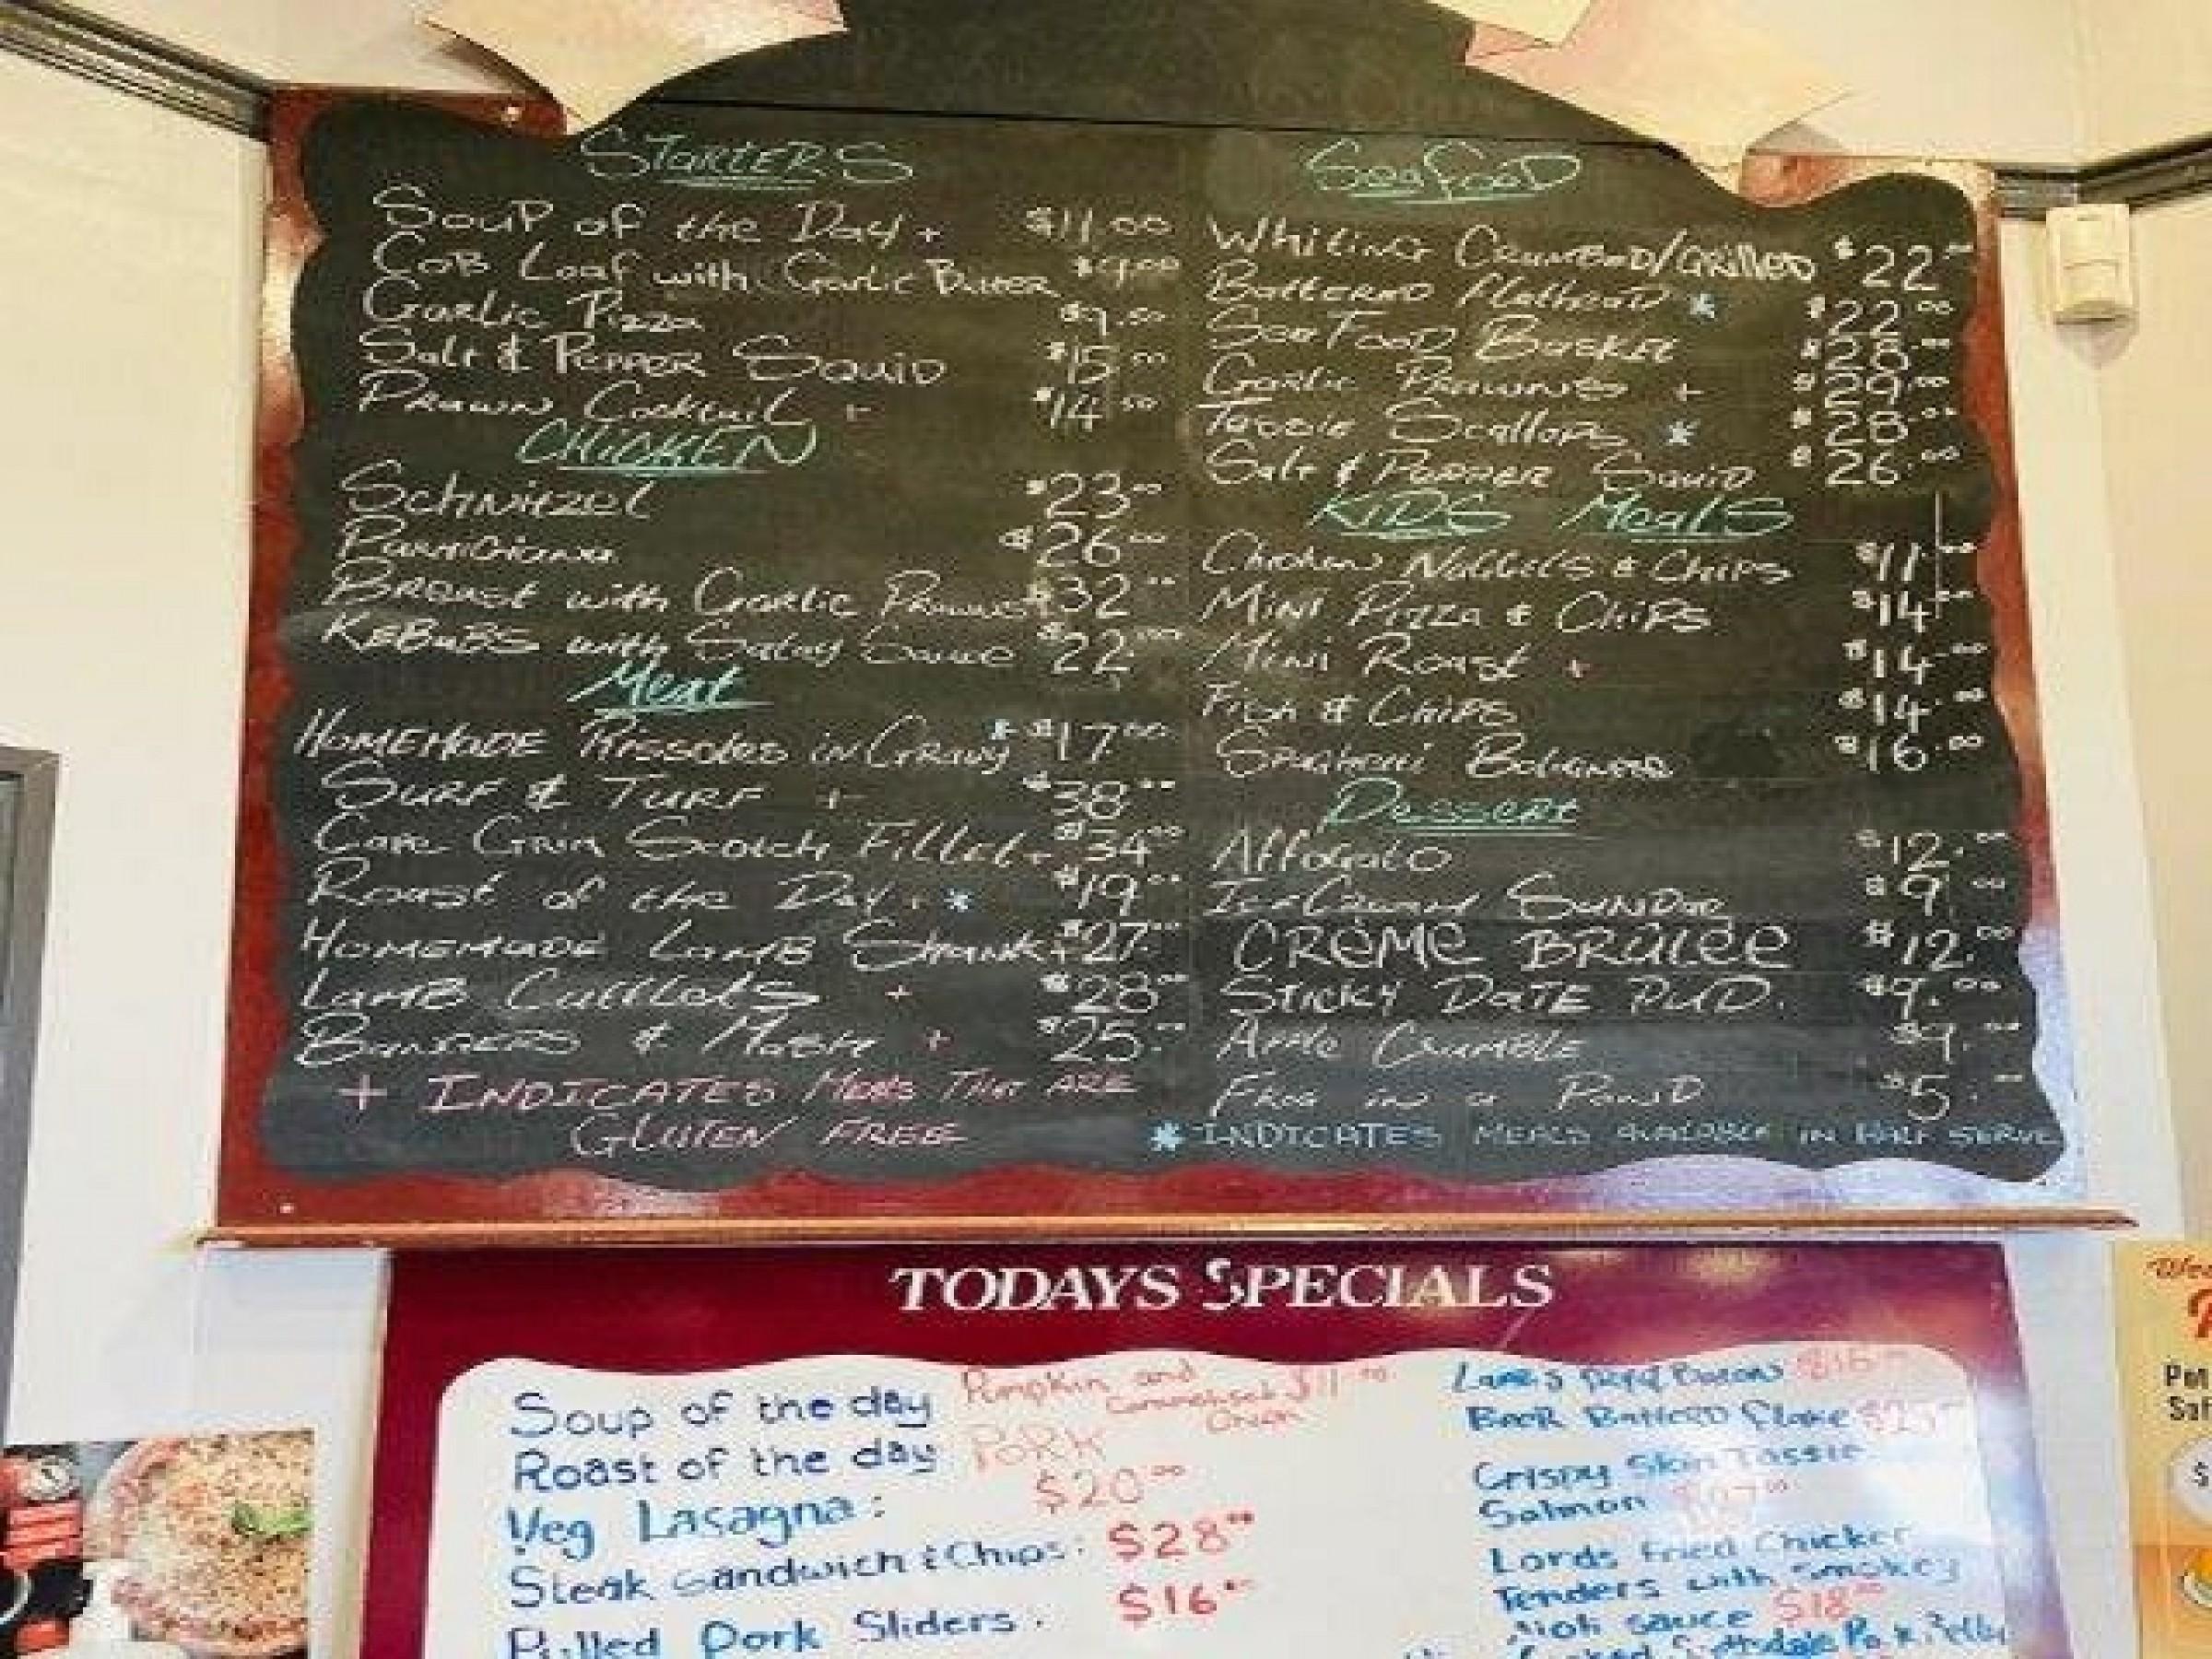 STARTERS
Soup of the Day + $11.00
Cob Loaf with Garlic Butter $9.00
Garlic Pizza $9.50
Salt & Pepper Squid $15.00
Prawn Cocktail + $14.50
CHICKEN
Schnitzel $23.00
Parmigiana $26.00
Breast with Garlic Prawns $32.00
KEBABS with Satay Sauce $22.00
Meat
HOMEMADE Rissoles in Gravy * $17.00
SURF & TURF + $38.00
Cape Grim Scotch Fillet + $34.00
Roast of the Day + * $19.00
HOMEMADE LAMB Shank + $27.00
LAMB Cutlets + $28.00
BANGERS & Mash + $25.00
+ INDICATES Meals That ARE
GLUTEN FREE
SeafooD
Whiting Crumbed/Grilled $22.00
Battered Flathead * $22.00
Sea Food Basket $28.00
Garlic Prawns + $29.00
Tassie Scallops * $28.00
Salt & Pepper Squid $26.00
KIDS Meals
Chicken Nuggets & Chips $11.00
Mini Pizza & Chips $14.00
Mini Roast + $14.00
Fish & Chips $14.00
Spaghetti Bolognese $16.00
Dessert
Affogato $12.00
Ice Cream Sundae $9.00
CRèMe BRûLee $12.00
STICKY DaTE PUD. $9.00
Apple Crumble $9.00
Frog in a Pond $5.00
* INDICATES MEALS AVAILABLE IN HALF SERVE
TODAYS SPECIALS
Soup of the day Pumpkin and $11.00
Onion
Roast of the day PORK
$20.00
Veg Lasagna:
Steak Sandwich & Chips: $28.00
Pulled Pork Sliders: $16.00
$16
Beer Battered Flake
Crispy Skin Tassie
Salmon
Lords Fried Chicken
Tenders with smokey
aioli sauce $18.00
Pet